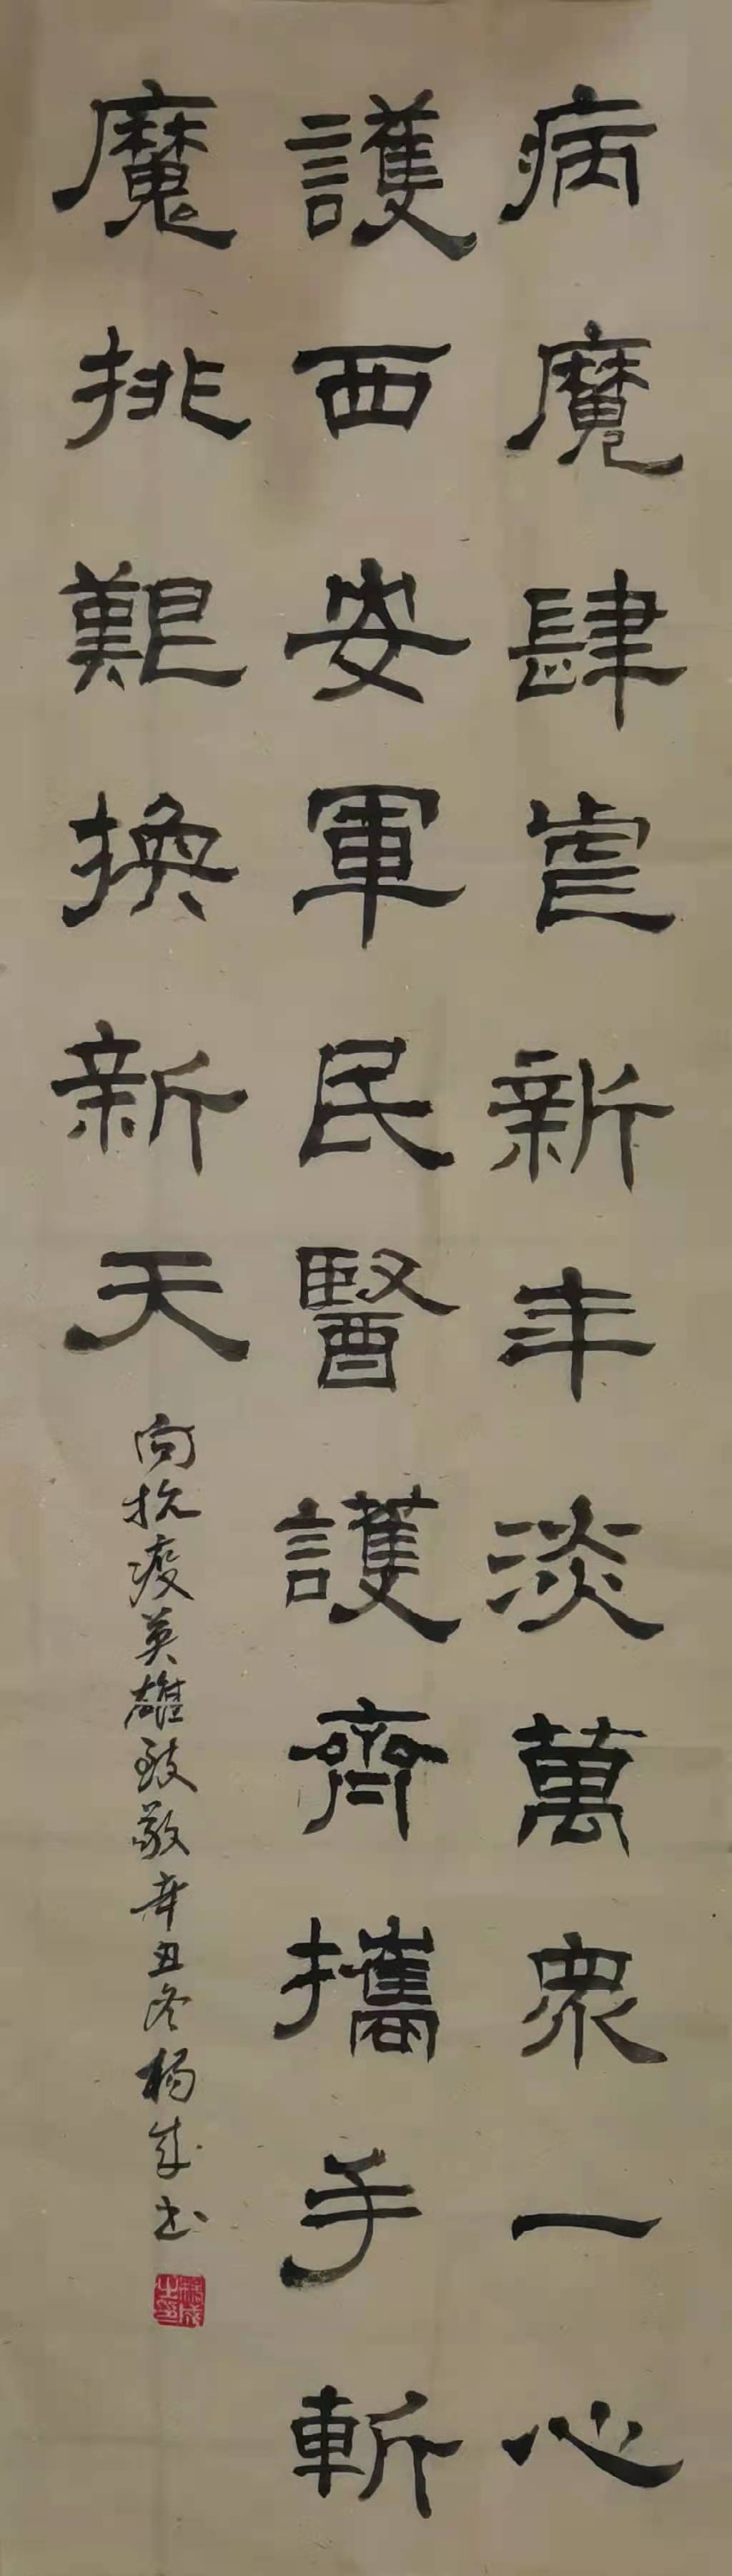 病魔肆虐新年淡萬衆一心
護西安軍民醫護齊攜手斬
魔挑艱換新天
向抗疫英雄致敬辛丑冬楊成书